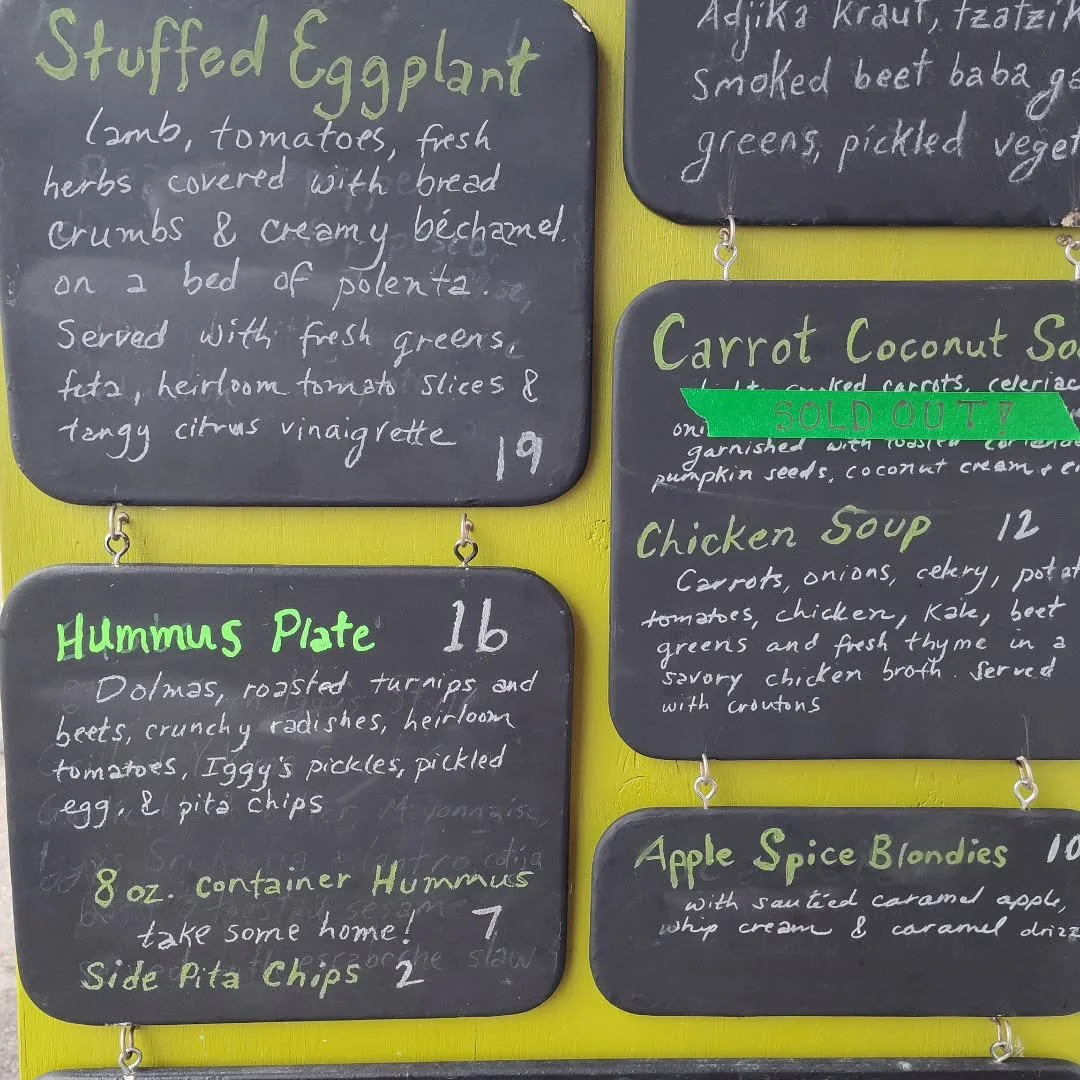 Stuffed Eggplant
lamb, tomatoes, fresh
herbs covered with bread
crumbs & creamy béchamel.
on a bed of polenta.
Served with fresh greens,
feta, heirloom tomato slices &
tangy citrus vinaigrette
19
Hummus Plate 16
Dolmas, roasted turnips and
beets, crunchy radishes, heirloom
tomatoes, Iggy's pickles, pickled
egg, & pita chips
8 oz. container Hummus
take some home! 7
Side Pita Chips 2
Adjika kraut,
smoked beet baba
greens, pickled
Carrot Coconut
carrots, celeriac
SOLD OUT!
garnished with
pumpkin seeds, coconut cream +
Chicken Soup 12
Carrots, onions, celery,
tomatoes, chicken, Kale, beet
greens and fresh thyme in a
savory chicken broth. Served
with croutons
Apple Spice Blondies 10
with sautéed caramel apple,
whip cream & caramel